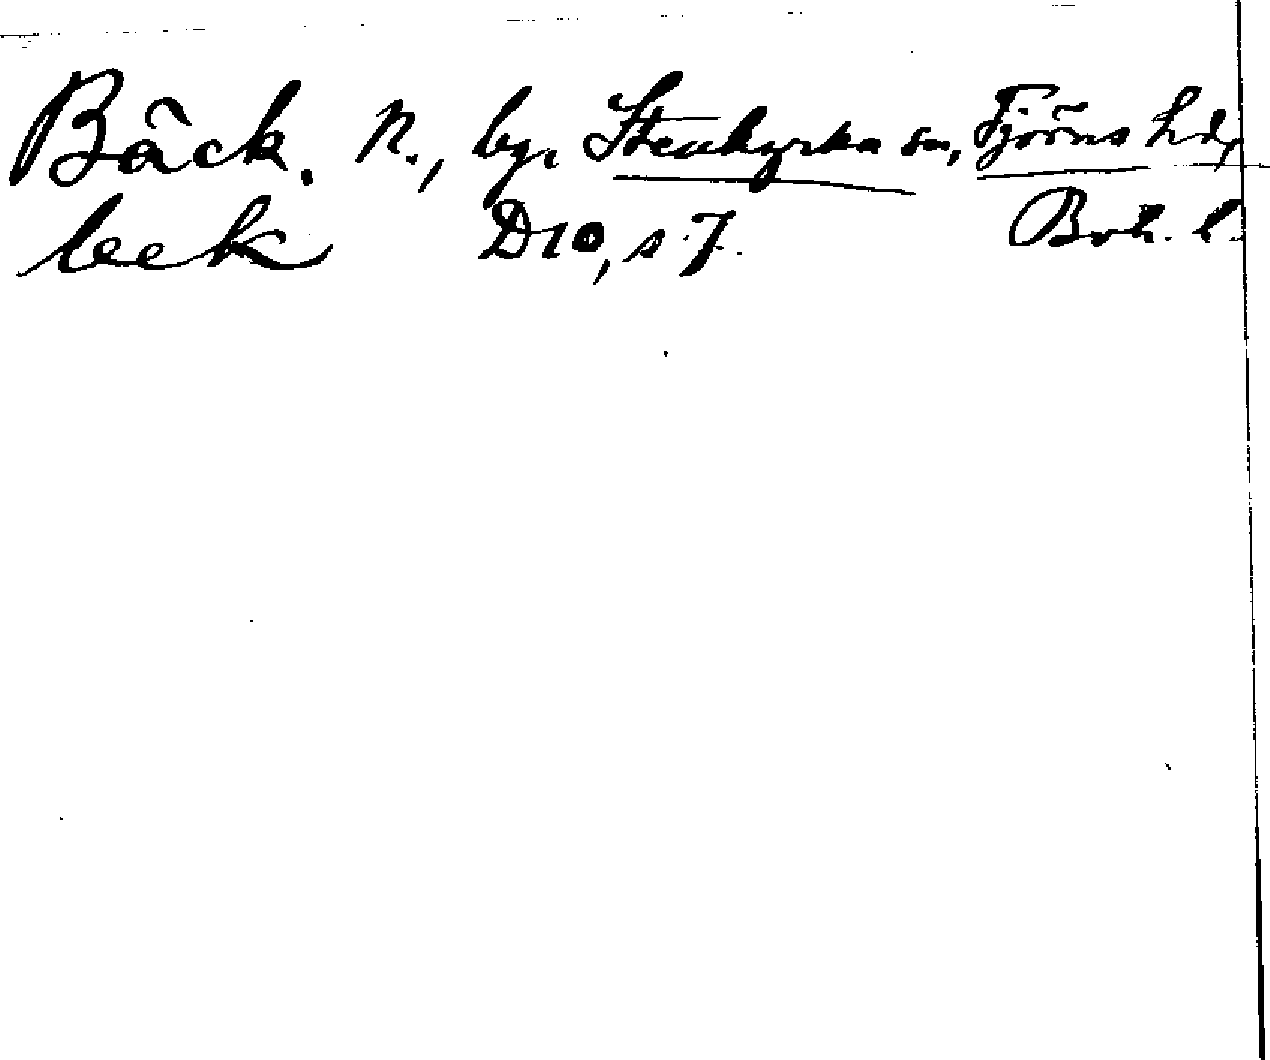 Bäck. N., by. Stenkyrka sn, Tjörns hd,
beck D10, s. 7. Boh. l.